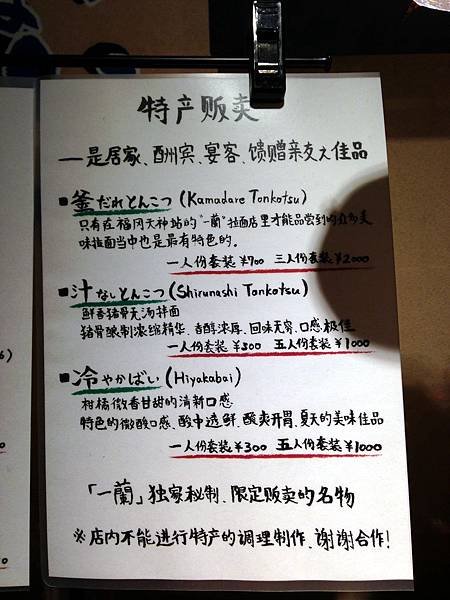 特产贩卖
一是居家、酬宾、宴客、馈赠亲友之佳品
■釜だれとんこつ (Kamadare Tonkotsu)
只有在福冈天神站的"一蘭"拉面店里才能品尝到的在多美
味拉面当中也是最有特色的。
一人份套装 ¥700 三人份套装 ¥2000
■汁なしとんこつ (Shirunashi Tonkotsu)
鲜香猪骨无汤拌面
猪骨酿制浓缩精华、香醇浓厚、回味无穷、口感极佳
一人份套装 ¥300 五人份套装 ¥1000
■冷やかばい (Hiyakabai)
柑橘微香甘甜的清新口感
特色的微酸口感、酸中透鲜、酸爽开胃、夏天的美味佳品
一人份套装 ¥300 五人份套装 ¥1000
「一蘭」独家秘制、限定贩卖的名物
※店内不能进行特产的调理制作、谢谢合作!